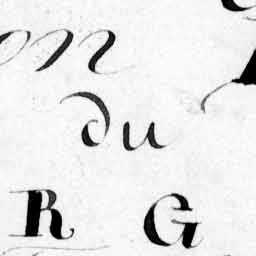 on
du
R G